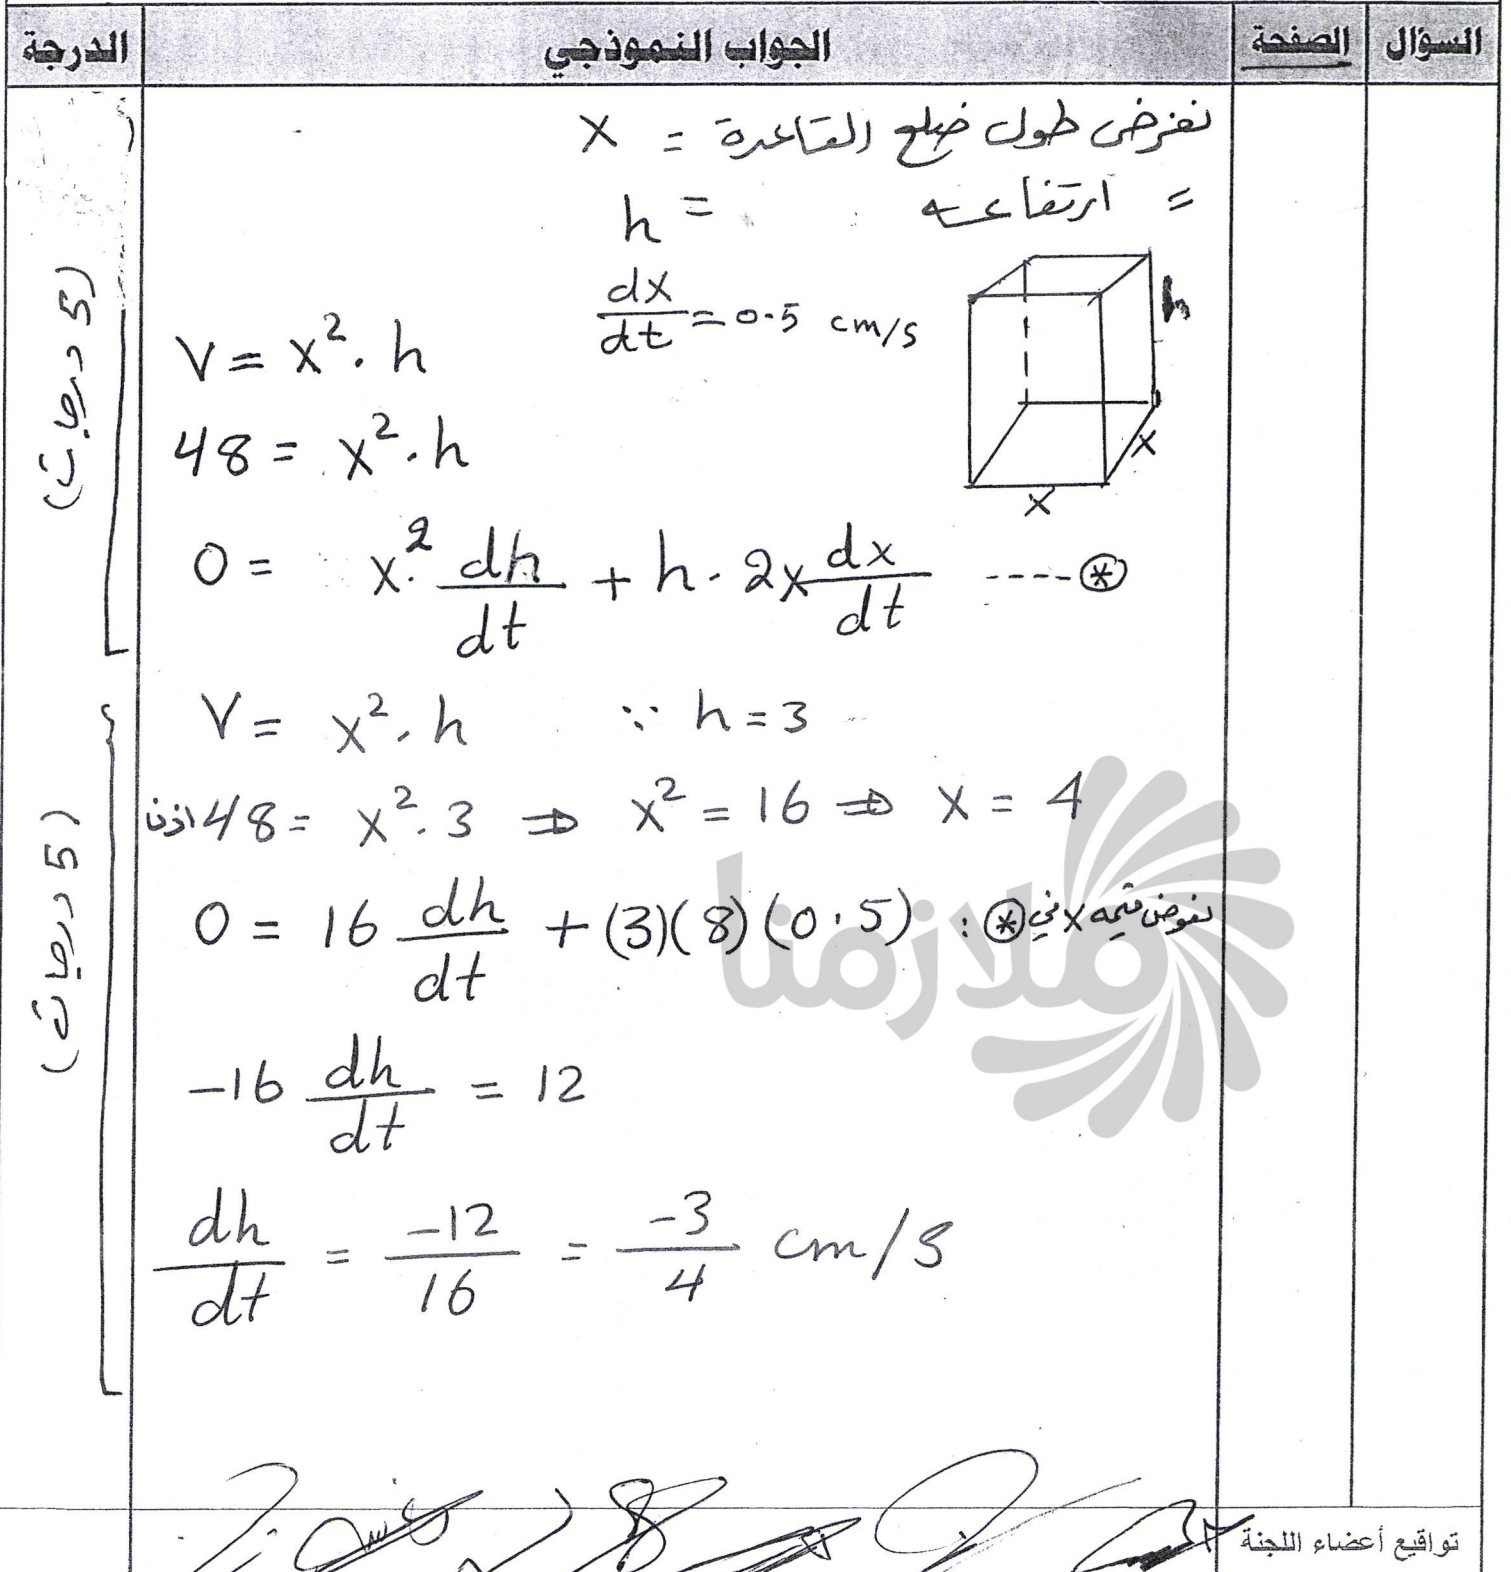 السؤال الصفحة الجواب النموذجي الدرجة
نفرض طول ضلع القاعدة = x
= ارتفاعه = h
dx/dt = 0.5 cm/s
h
x
x
V = x². h
48 = x². h
0 = x². dh/dt + h. 2x dx/dt ----(*)
(5 درجات)
V = x². h ∵ h = 3
اذن 48 = x². 3 ⇒ x² = 16 ⇒ x = 4
نعوض قيمه x في (*) :
0 = 16 dh/dt + (3)(8)(0.5)
-16 dh/dt = 12
dh/dt = -12/16 = -3/4 cm/s
(5 درجات)
ملازمنا
تواقيع أعضاء اللجنة